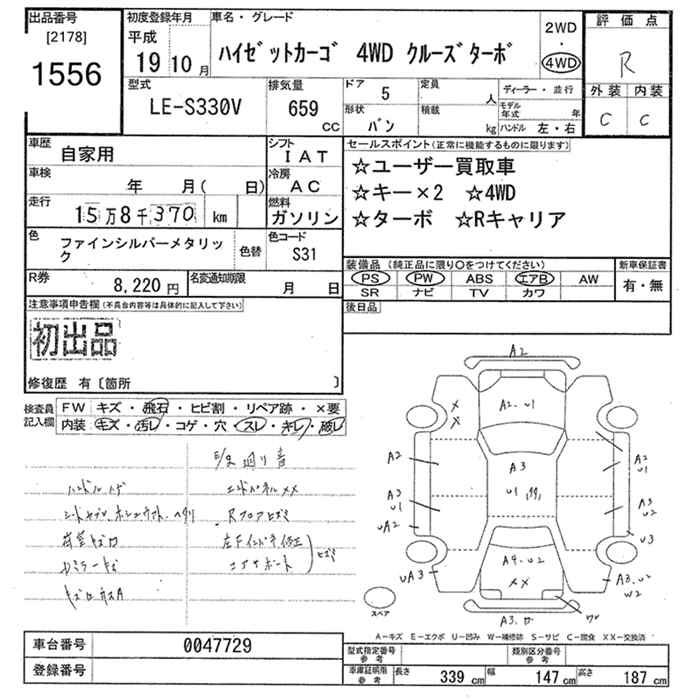 出品番号
[2178]
1556
初度登録年月
平成
19 10 月
車名・グレード
ハイゼットカーゴ 4WD クルーズターボ
2WD
・
4WD
評価点
R
外装 内装
C C
型式
LE-S330V
排気量
659
cc
ドア 5
形状
バン
定員 人
積載 kg
ディーラー・並行
モデル年式 年
ハンドル 左・右
車歴
自家用
シフト
IAT
車検
年 月( 日)
冷房
AC
走行
15万8千370 km
燃料
ガソリン
色
ファインシルバーメタリック
色替
色コード
S31
R券
8,220円
名変通知期限
月 日
セールスポイント(正常に機能するものに限ります)
☆ユーザー買取車
☆キー×2 ☆4WD
☆ターボ ☆Rキャリア
装備品(純正品に限り○をつけてください)
PS PW ABS エアB AW
SR ナビ TV カワ
新車保証書
有・無
後日品
注意事項申告欄(不具合内容等は具体的に記入して下さい)
初出品
修復歴 有〔箇所 〕
検査員記入欄
FW キズ・飛石・ヒビ割・リペア跡・×要
内装・キズ・汚レ・コゲ・穴・スレ・キレ・破レ
廻り音
ハンドルハゲ
エンドパネルXX
Rフロアヒズミ
荷室キズ凹
左Fインドネ修正
ヒズミ
コアサポート
ガラスA
A2
A2.U1
A3
U1
A2
A3
U1
UA2
UA3
A4.U2
XX
A2
U1
A3
U2
U3
A3.U2
W2
スペア
A-キズ E-エクボ U-凹み W-補修跡 S-サビ C-腐食 XX-交換済
車台番号
0047729
登録番号
型式指定番号
参考
類別区分番号
参考
車庫証明用
参考
長さ 339 cm 幅 147 cm 高さ 187 cm